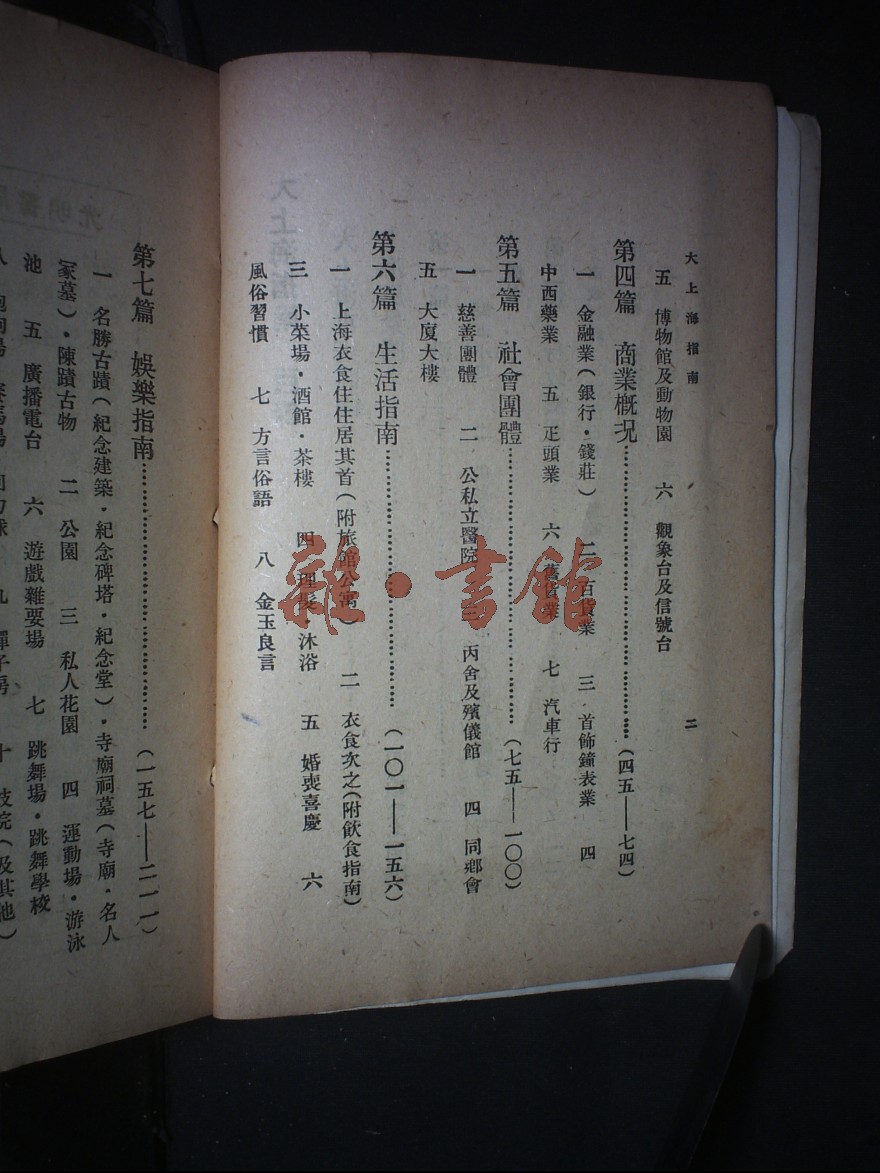 大上海指南
二
五 博物館及動物園 六 觀象台及信號台
第四篇 商業概况……(四五——七四)
一 金融業(銀行·錢莊) 二 百貨業 三 首飾鐘表業 四
中西藥業 五 疋頭業 六 舊貨業 七 汽車行
第五篇 社會團體……(七五——一〇〇)
一 慈善團體 二 公私立醫院 三 丙舍及殯儀館 四 同鄉會
五 大廈大樓
第六篇 生活指南……(一〇一——一五六)
一 上海衣食住住居其首(附旅館公寓) 二 衣食次之(附飲食指南)
三 小菜場·酒館·茶樓 四 理髮 沐浴 五 婚喪喜慶 六
風俗習慣 七 方言俗語 八 金玉良言
第七篇 娛樂指南……(一五七——二一一)
一 名勝古蹟(紀念建築·紀念碑塔·紀念堂)·寺廟祠墓(寺廟·名人
冢墓)·陳蹟古物 二 公園 三 私人花園 四 運動場·游泳
池 五 廣播電台 六 遊戲雜耍場 七 跳舞場·跳舞學校
八 跑狗場
九 彈子房 十 妓院(及其他)
雜·書館